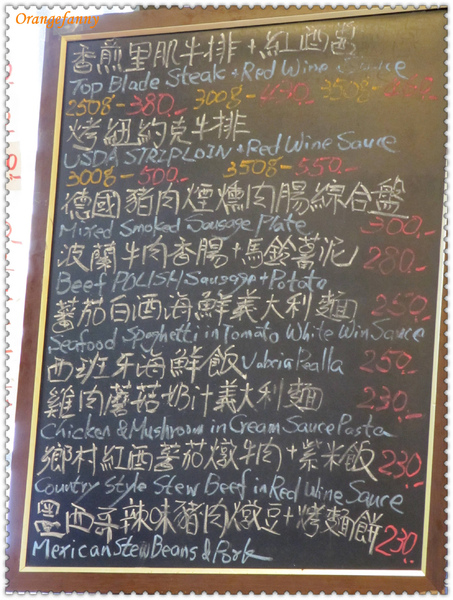 Orangefanny
香煎里肌牛排+紅酒醬
Top Blade Steak+Red Wine Sauce
250g-380.- 300g-430.- 350g-
烤紐約克牛排
USDA STRIPLOIN+Red Wine Sauce
300g-500.- 350g-550.-
德國豬肉煙燻肉腸綜合盤
Mixed Smoked Sausage Plate 300.-
波蘭牛肉香腸+馬鈴薯泥 280.-
Beef POLISH Sausage+Potato
蕃茄白酒海鮮義大利麵 250.-
Seafood Spaghetti in Tomato White Win Sauce
西班牙海鮮飯 Valxcia Pealla 250.-
雞肉蘑菇奶汁義大利麵 230.-
Chicken & Mushroom in Cream Sauce Pasta
鄉村紅酒蕃茄燉牛肉+紫米飯 230.-
Country Style Stew Beef in Red Wine Sauce
墨西哥辣味豬肉燉豆+烤麵餅 230.-
Mexican Stew Beans & Pork